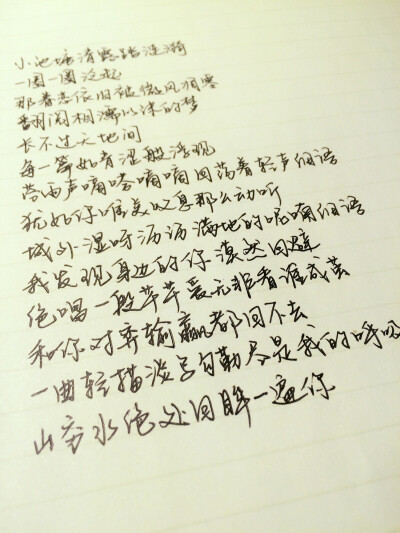 小池塘清露踏涟漪
一圈一圈泛起
那眷恋依旧被微风烦寥
翻阅相濡以沫的梦
长不过天地间
每一笔如青涩般浮现
带雨声嘀嗒嘀嘀回荡着轻声细语
犹如你唯美叹息那么动听
城外湿呀沥沥满地的呢喃细语
我发现身边的你漠然回避
绝唱一段芊芊爱无非看谁成茧
和你对弈输赢都回不去
一曲轻描淡写勾勒尽是我的呼吸
山穷水绝处回眸一遍你